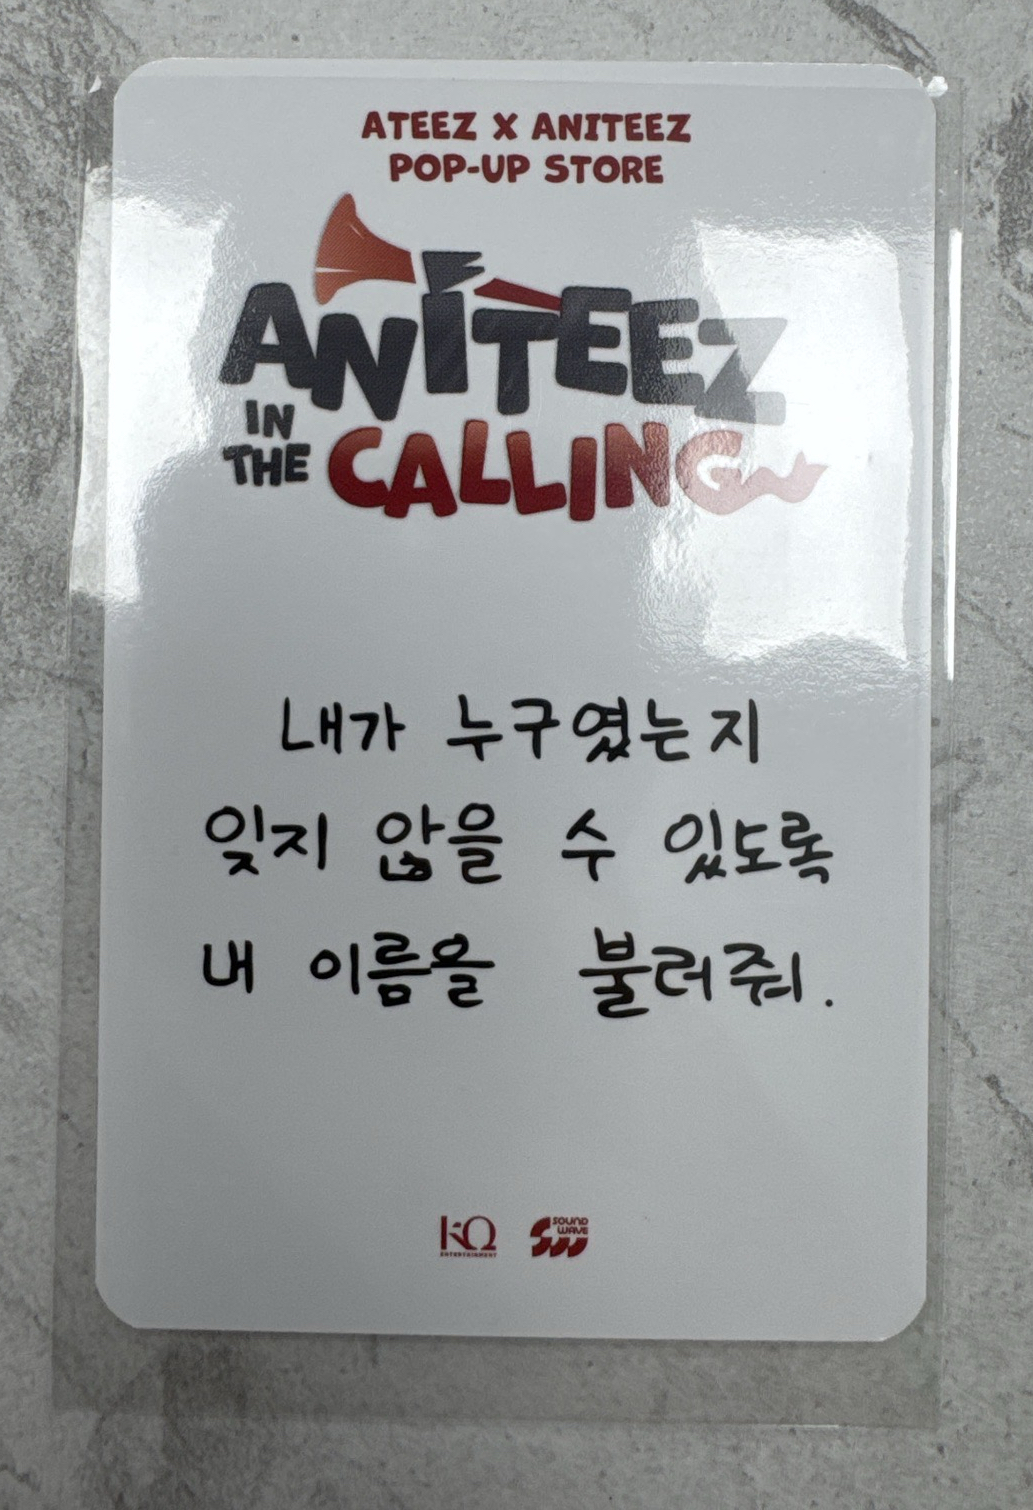 ATEEZ X ANITEEZ
POP-UP STORE
ANITEEZ
IN THE CALLING
내가 누구였는지
잊지 않을 수 있도록
내 이름을 불러줘.
KQ ENTERTAINMENT
SOUND WAVE